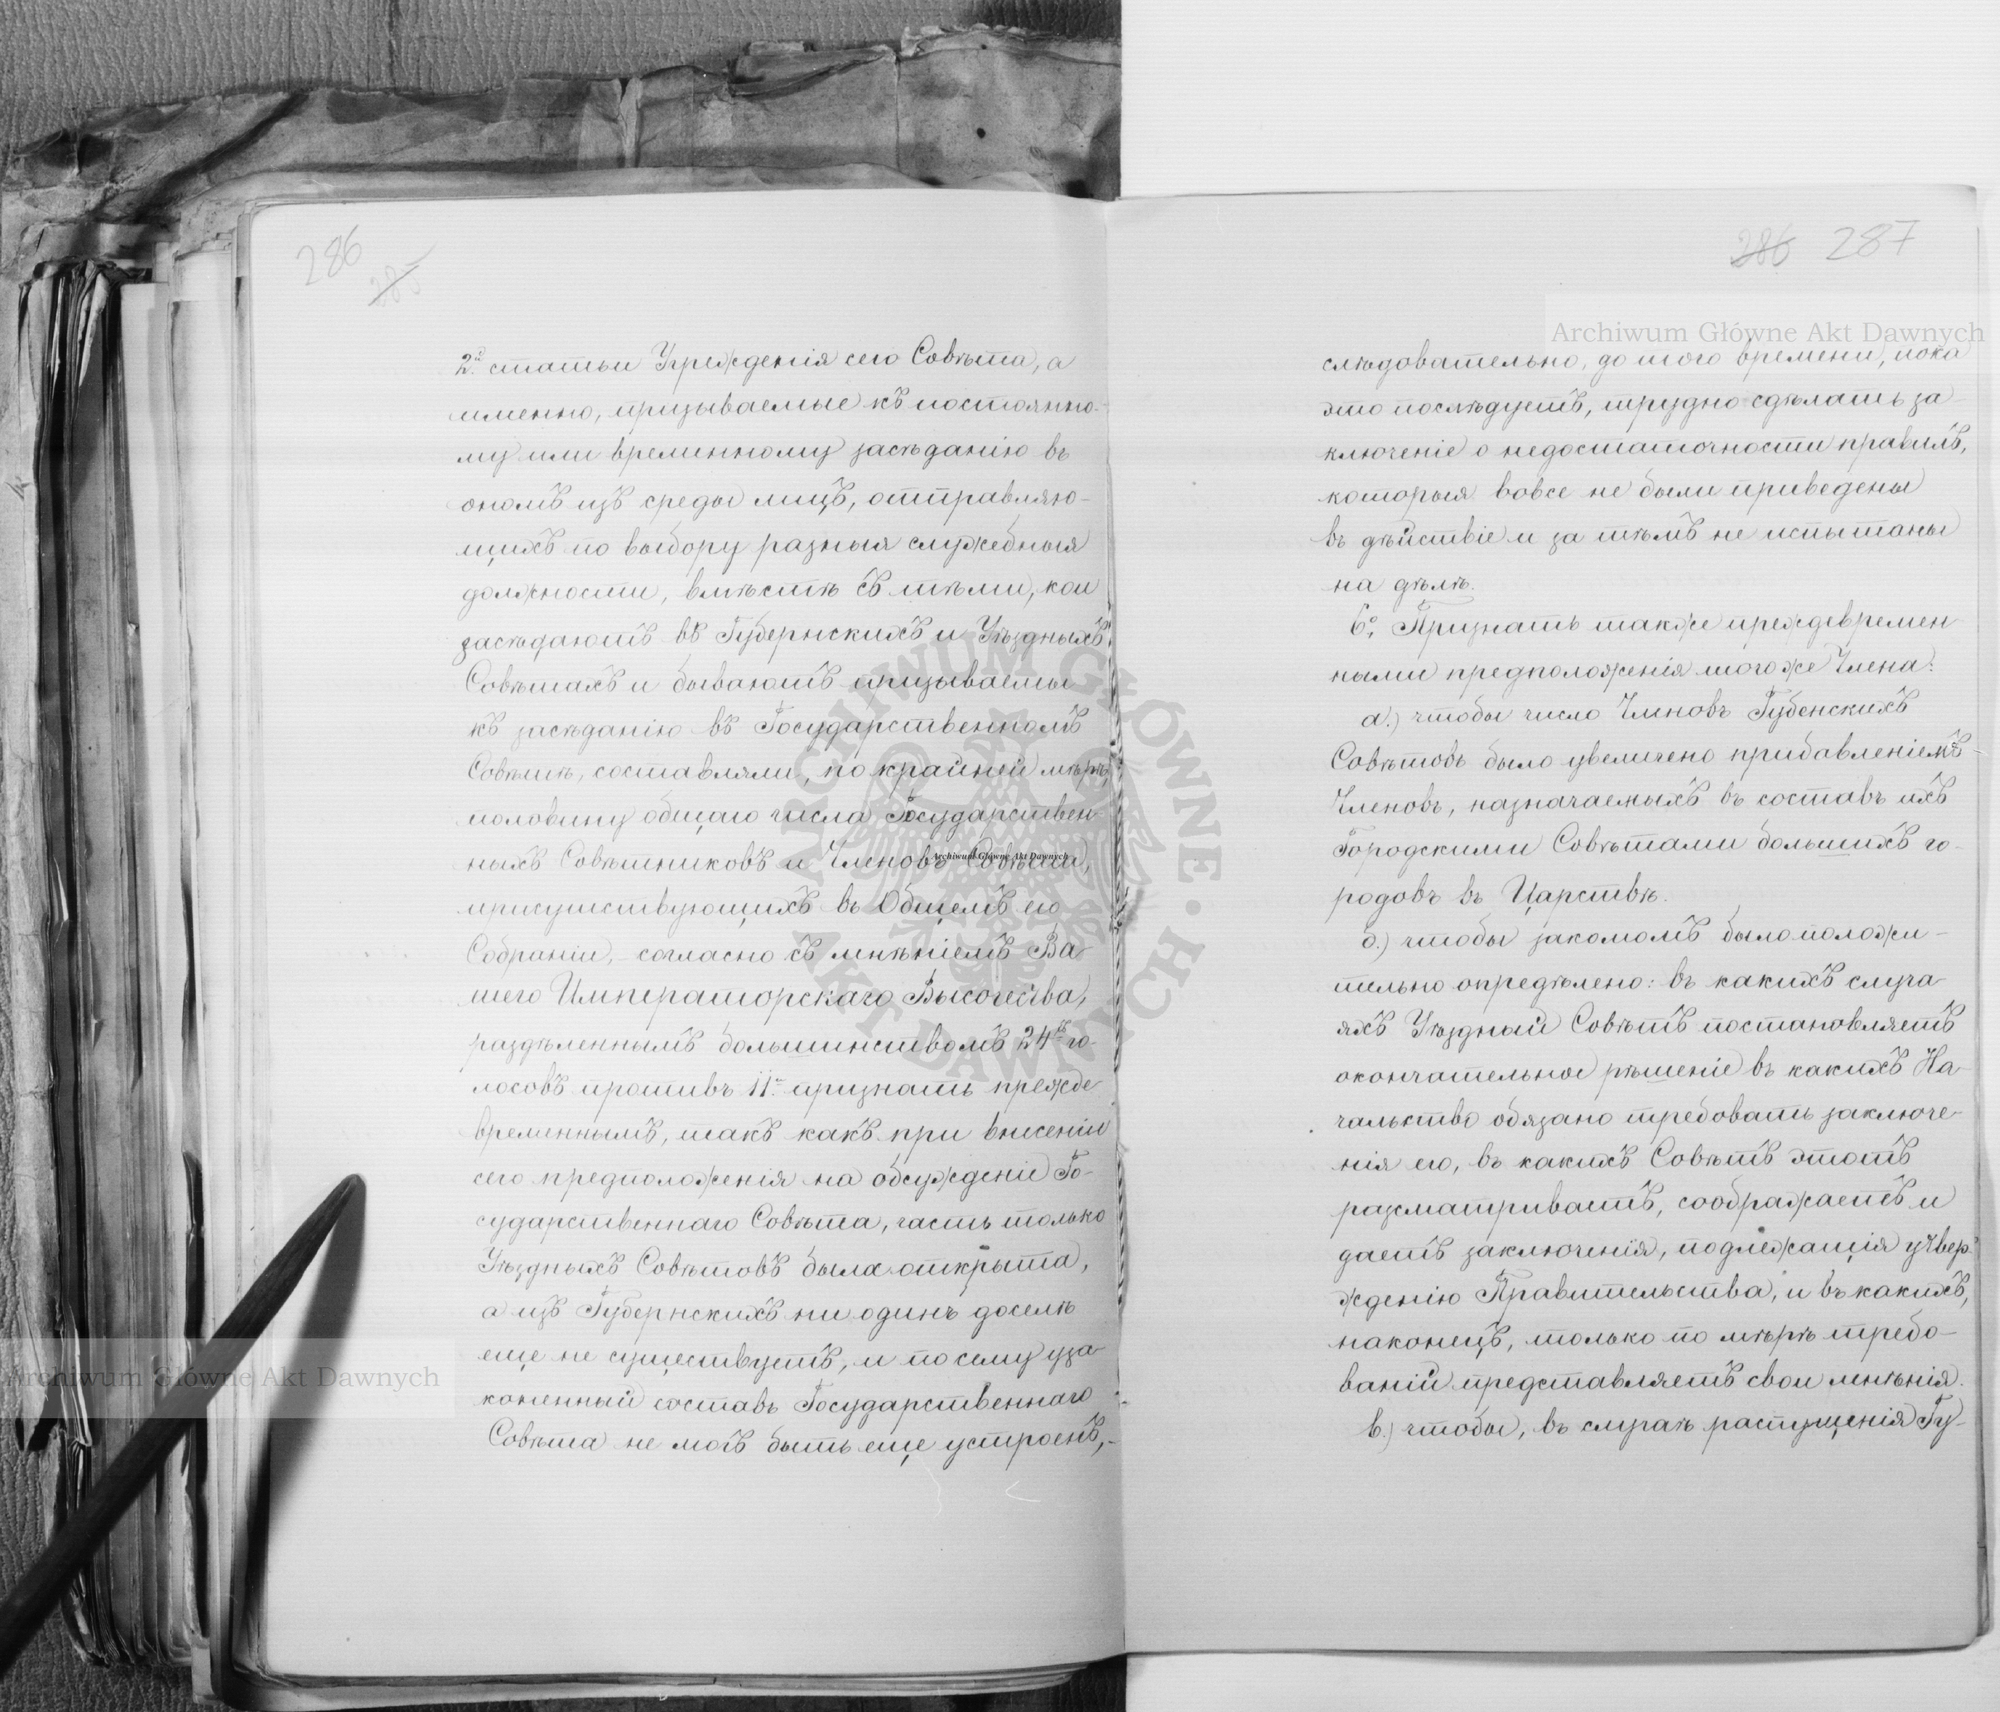 286
285
2й статьи Учрежденія сего Совѣта, а
именно, призываемые къ постоянно-
му или временному засѣданію въ
ономъ изъ среды лицъ, отправляю-
щихъ по выбору разныя служебныя
должности, вмѣстѣ съ тѣми, кои
засѣдаютъ въ Губернскихъ и Уѣздныхъ
Совѣтахъ и бываютъ призываемы
къ засѣданію въ Государственномъ
Совѣтѣ, составляли, по крайней мѣрѣ,
половину общаго числа Государствен-
ныхъ Совѣтниковъ и Членовъ Совѣта,
присутствующихъ въ Общемъ его
Собраніи, согласно съ мнѣніемъ Ва-
шего Императорскаго Высочества,
раздѣленнымъ большинствомъ 24хъ го-
лосовъ противъ 11. признать прежде
временнымъ, такъ какъ при внесеніи
сего предположенія на обсужденіе Го-
сударственнаго Совѣта, часть только
Уѣздныхъ Совѣтовъ была открыта,
а изъ Губернскихъ ни одинъ доселѣ
еще не существуетъ, и по сему уза-
коненный составъ Государственнаго
Совѣта не могъ быть еще устроенъ,-
286 287
слѣдовательно, до того времени, пока
это послѣдуетъ, трудно сдѣлать за-
ключеніе о недостаточности правилъ,
которыя вовсе не были приведены
въ дѣйствіе и за тѣмъ не испытаны
на дѣлѣ.
6º, Признать также преждевремен-
ными предположенія того же Члена:
а.) чтобы число Членовъ Губенскихъ
Совѣтовъ было увеличено прибавленіемъ
Членовъ, назначаемыхъ въ составъ ихъ
Городскими Совѣтами большихъ го-
родовъ въ Царствѣ.
б.) чтобы закономъ было положи-
тельно опредѣлено: въ какихъ случа-
яхъ Уѣздный Совѣтъ постановляетъ
окончательное рѣшеніе въ какихъ На-
чальство обязано требовать заключе-
нія его, въ какихъ Совѣтъ этотъ
разсматриваетъ, соображаетъ и
даетъ заключенія, подлежащія утвер-
жденію Правительства, и въ какихъ,
наконецъ, только по мѣрѣ требо-
ваній представляетъ свои мнѣнія.
в.) чтобы, въ случаѣ распущенія Гу-
Archiwum Główne Akt Dawnych
Archiwum Główne Akt Dawnych
Archiwum Główne Akt Dawnych
ARCHIWUM GŁÓWNE • AKT DAWNYCH •